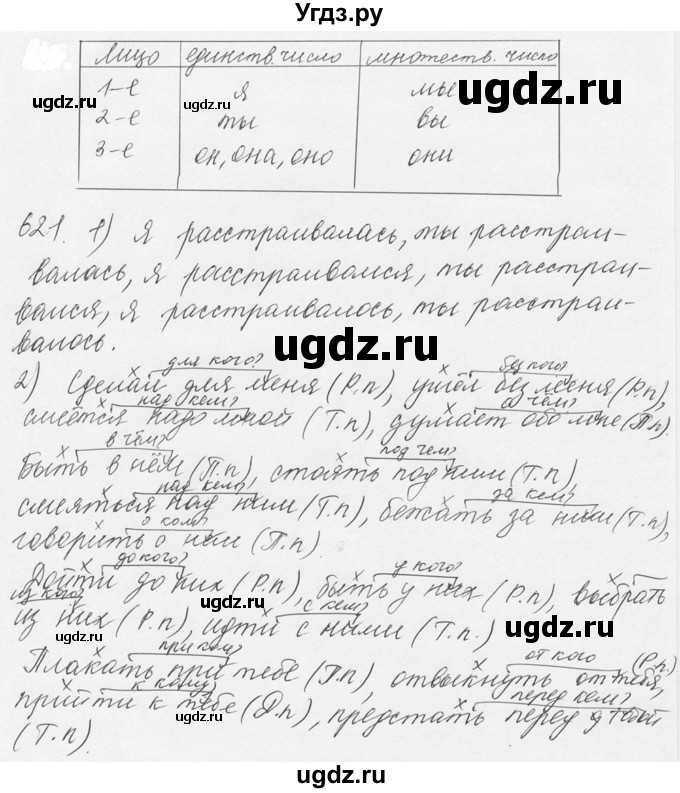 Угдз.ру
Лицо единств. число множеств. число
1-е я мы
ugdz.ru
ugdz.ru ugdz.ru
2-е ты вы
3-е он, она, оно они
621. 1) Я расстраивалась, ты расстраи-
ugdz.ru
валась, я расстраивался, ты расстраи-
вался, я расстраивалось, ты расстраи-
ugdz.ru
валось.
для кого? без кого?
2) Сделай для меня (Р.п), ушёл без меня (Р.п),
над кем? о чём?
смеётся надо мной (Т.п), думает обо мне (П.п).
ugdz.ru
в чём? под чем?
Быть в нём (П.п), стоять под ним (Т.п),
над кем? за кем?
смеяться над ним (Т.п), бежать за ним (Т.п),
о ком?
говорить о нём (П.п).
ugdz.ru
до кого? у кого?
Дойти до них (Р.п), быть у них (Р.п), выбрать
из кого? с кем?
из них (Р.п), идти с ними (Т.п.)
ugdz.ru ugdz.ru
при ком? от кого (Р.п)
Плакать при тебе (П.п) отвыкнуть от тебя,
к кому? перед кем?
прийти к тебе (Д.п), предстать перед тобой
(Т.п).
ugdz.ru
ugdz.ru